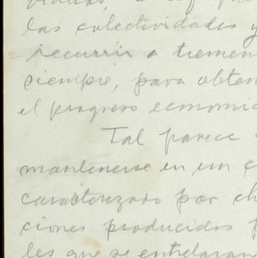 las colectividades y
recurrir a
siempre, para obten
el progreso economic
Tal parece
mantenerse en un c
caracterizado por ch
ciones producidos p
les que se entrelazan